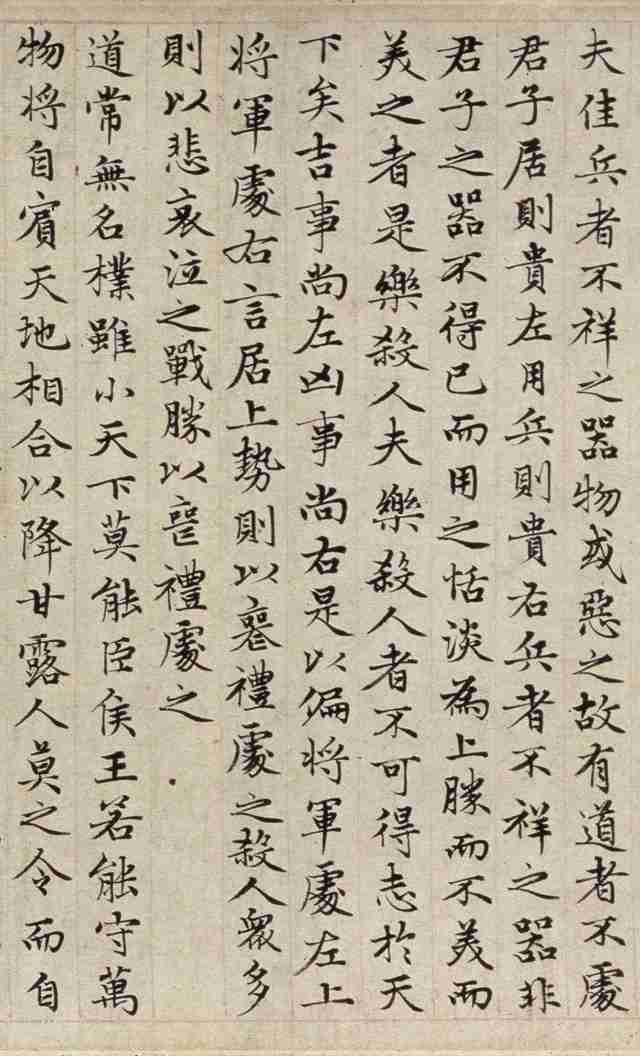 夫佳兵者不祥之器物或惡之故有道者不處
君子居則貴左用兵則貴右兵者不祥之器非
君子之器不得已而用之恬淡為上勝而不美而
美之者是樂殺人夫樂殺人者不可得志於天
下矣吉事尚左凶事尚右是以偏将軍處左上
将軍處右言居上勢則以喪禮處之殺人衆多
則以悲哀泣之戰勝以喪禮處之
道常無名樸雖小天下莫能臣侯王若能守萬
物将自賓天地相合以降甘露人莫之令而自